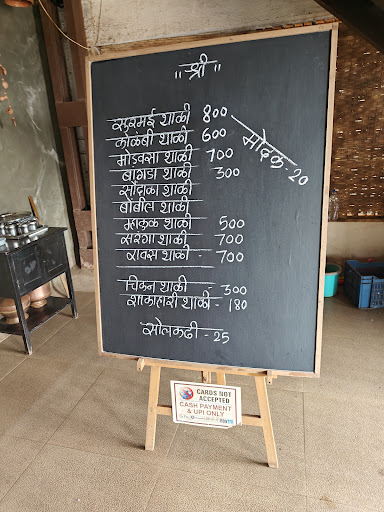 ॥ श्री ॥
सुरमई थाळी 800
कोळंबी थाळी 600
मोडवसा थाळी 700
बांगडा थाळी 300
सौंदाळा थाळी
बोंबील थाळी
म्हाकुळ थाळी 500
सरंगा थाळी 700
रावस थाळी - 700
मोदक - 20
चिकन थाळी 300
शाकाहारी थाळी - 180
सोलकढी - 25
CARDS NOT
ACCEPTED
CASH PAYMENT
& UPI ONLY